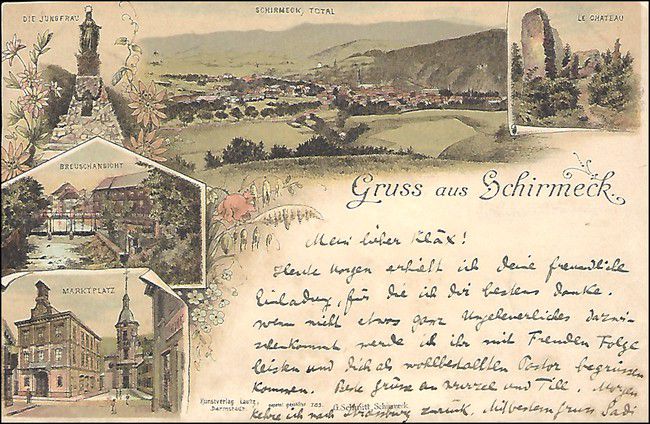 DIE JUNGFRAU
SCHIRMECK, TOTAL
LE CHATEAU
BREUSCHANSICHT
MARKTPLATZ
Gruss aus Schirmeck.
Mein lieber Kläx!
Heute Morgen erhielt ich Deine freundliche
Einladung, für die ich Dir bestens danke.
Wenn nicht etwas ganz Ungeheuerliches dazwi-
schenkommt werde ich ihr mit Freuden Folge
leisten und Dich als wohlbestallten Pastor begrüssen
können. Beste Grüsse an Wurzel und Till. Morgen
kehre ich nach Strassburg zurück. Mit bestem Gruss
Kunstverlag Lautz,
Darmstadt.
gesetzl. geschützt 785.
G. Schmitt, Schirmeck.